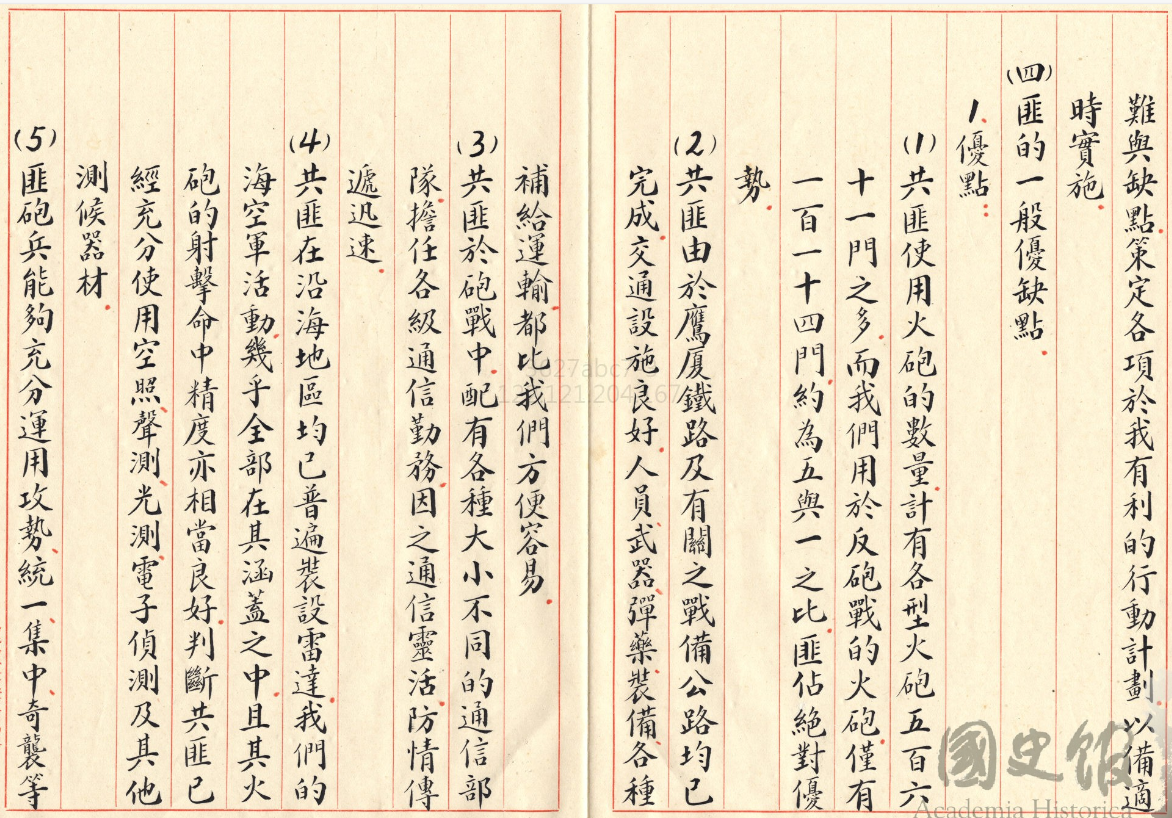 難與缺點策定各項於我有利的行動計劃.以備適
時實施.
(四)匪的一般優缺點.
1.優點:
(1)共匪使用火砲的數量.計有各型火砲五百六
十一門之多.而我們用於反砲戰的火砲僅有
一百一十四門約為五與一之比.匪佔絕對優
勢.
(2)共匪由於鷹厦鐵路及有關之戰備公路均已
完成.交通設施良好.人員.武器.彈藥.裝備.各種
補給運輸都比我們方便容易.
(3)共匪於砲戰中.配有各種大小不同的通信部
隊.擔任各級通信勤務.因之通信靈活.防情傳
遞迅速.
(4)共匪在沿海地區均已普遍裝設雷達.我們的
海空軍活動.幾乎全部在其涵蓋之中.且其火
砲的射擊命中精度亦相當良好.判斷共匪已
經充分使用空照.聲測.光測.電子偵測及其他
測候器材.
(5)匪砲兵能夠充分運用攻勢.統一.集中.奇襲等
國史館
Academia Historica